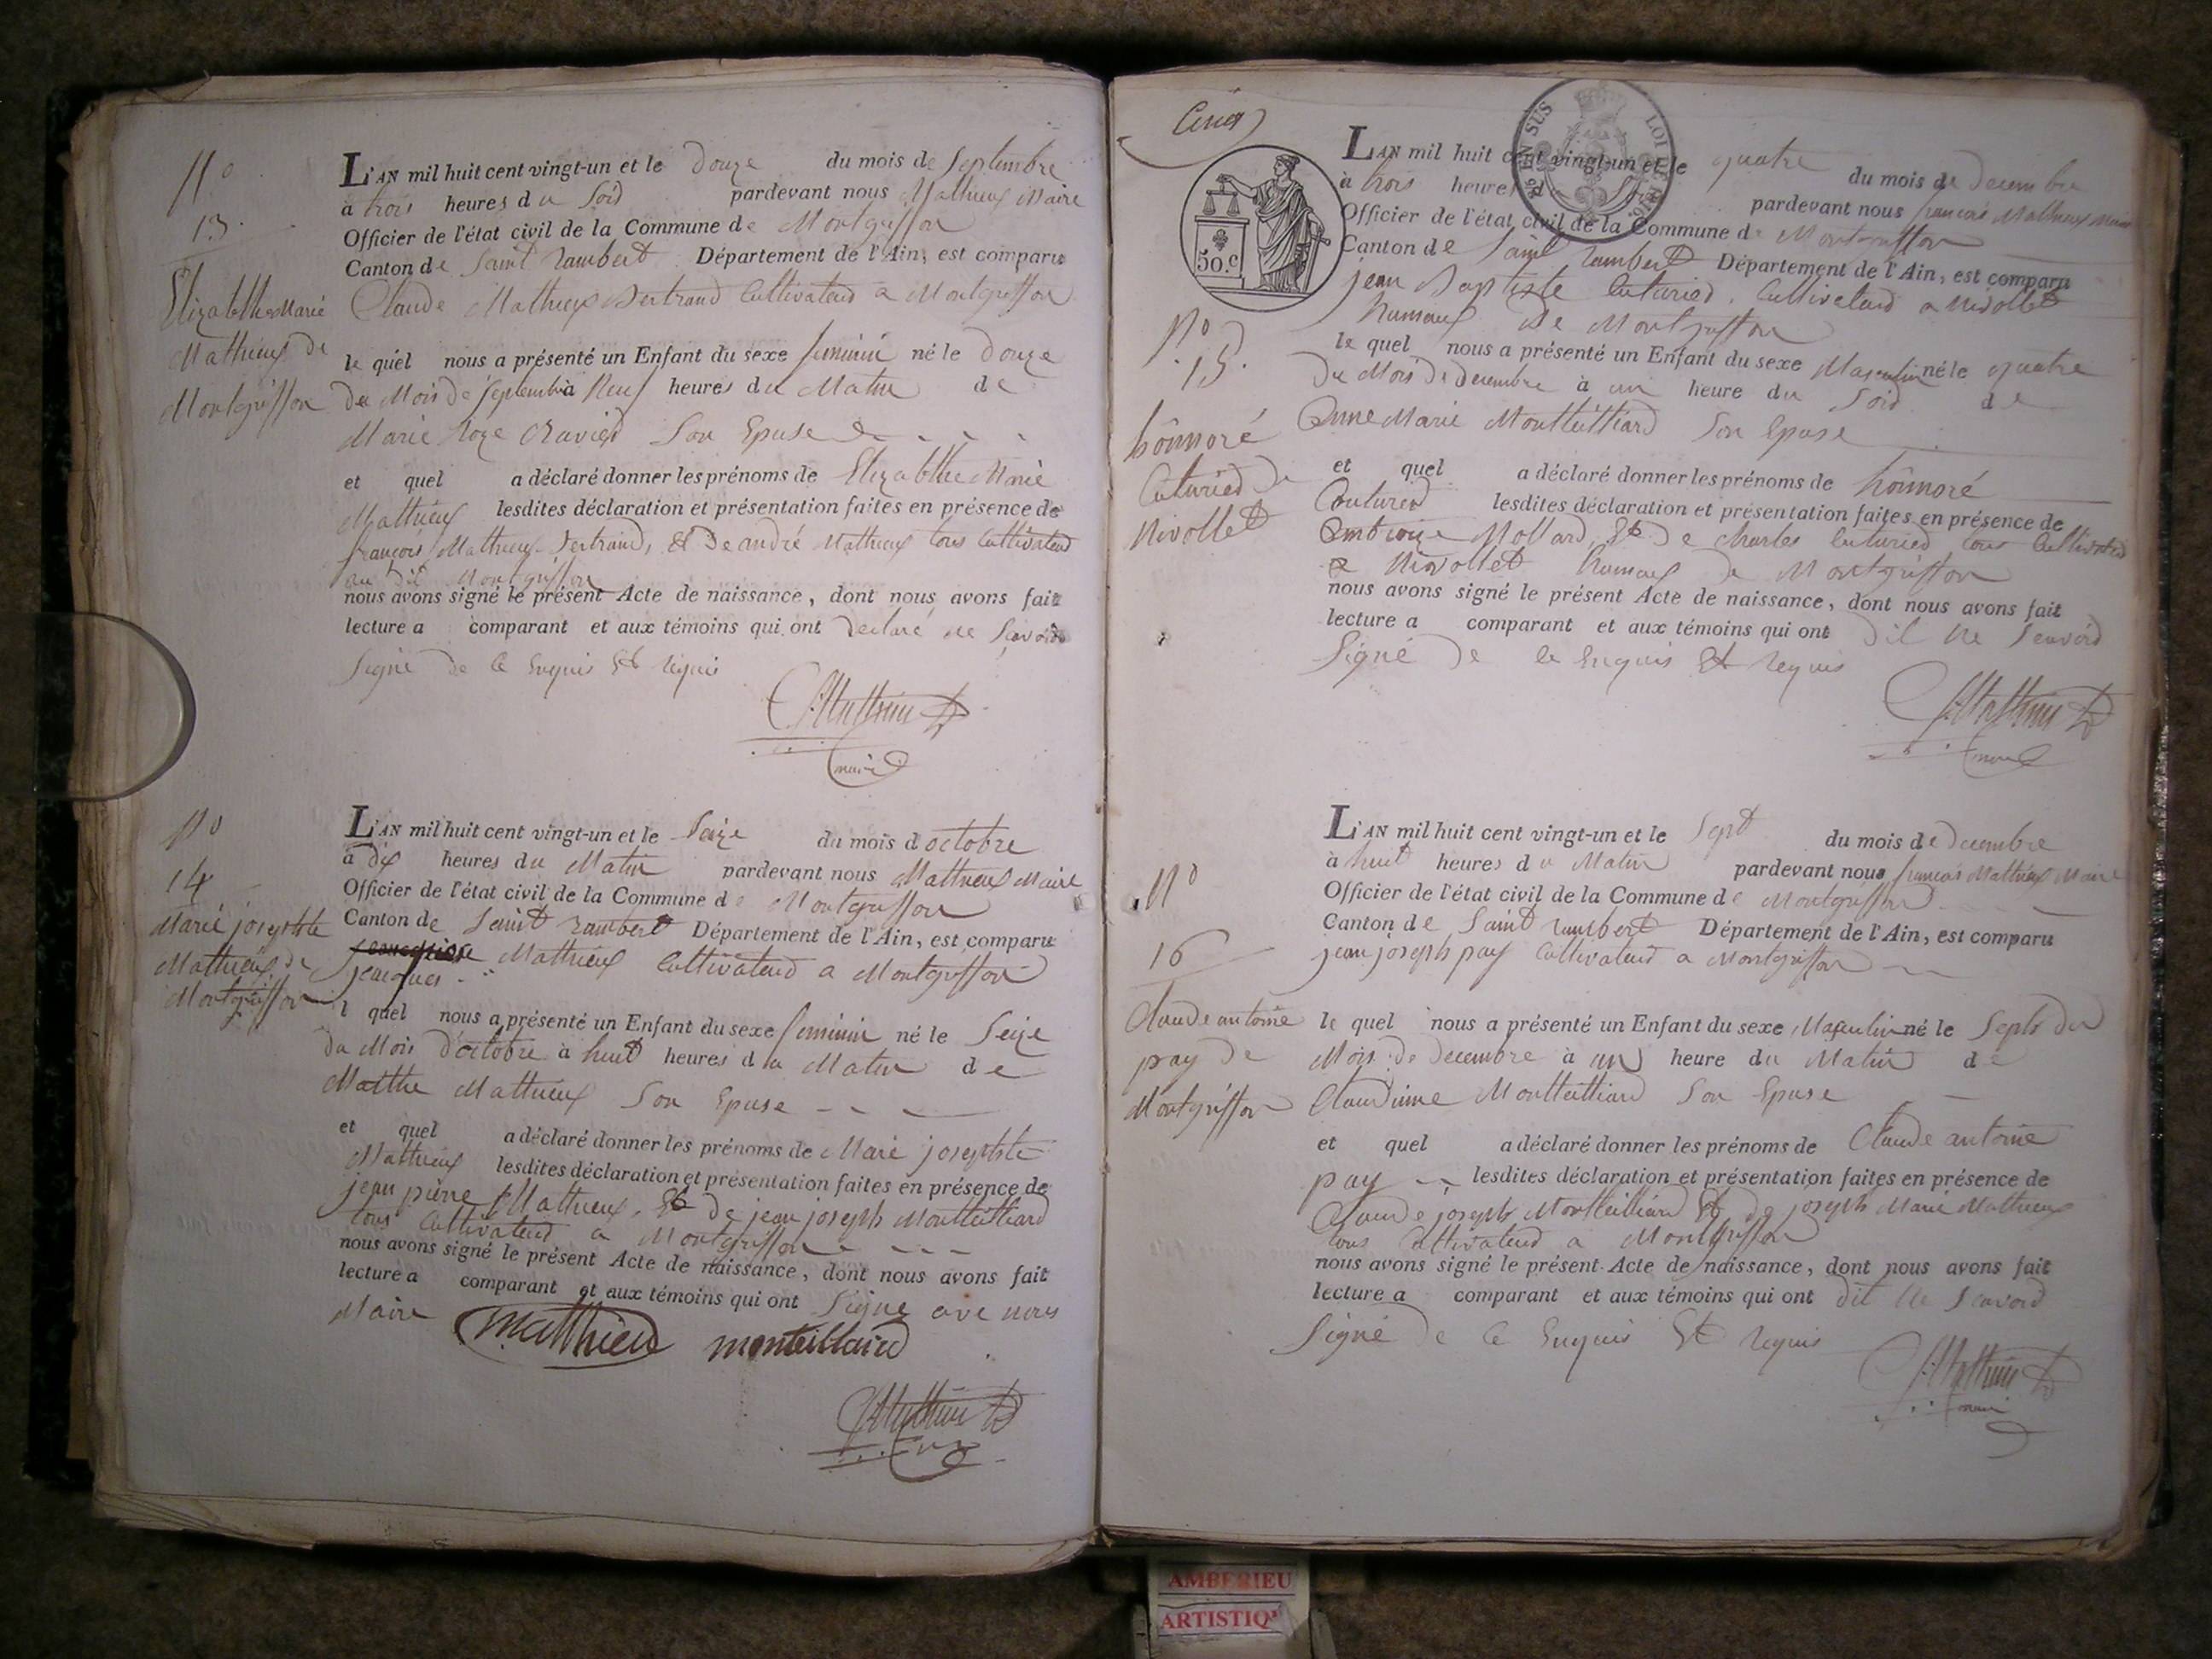 N.º
13.
Elizabeth Marie
Mathieux de
Montgriffon
L'AN mil huit cent vingt-un et le douze du mois de Septembre
à trois heures du Soir pardevant nous Mathieux Maire
Officier de l'état civil de la Commune de Montgriffon
Canton de Saint Rambert Département de l'Ain, est comparu
Claude Mathieux Bertrand Cultivateur a Montgriffon
le quel nous a présenté un Enfant du sexe feminin né le douze
du Mois de Septembre à Neuf heures du Matin de
Marie Roze Son Epuse
et quel a déclaré donner les prénoms de Elizabethe Marie
Mathieux lesdites déclaration et présentation faites en présence de
françois Mathieux Bertrand, Et de andré Mathieux tous Cultivateur
au dit Montgriffon
nous avons signé le présent Acte de naissance, dont nous avons fait
lecture a comparant et aux témoins qui ont declaré ne Scavoir
Signé de Ce Enquis Et requis
Mathieu B
maire
N.º
14
Marie josephte
Mathieux de
Montgriffon
L'AN mil huit cent vingt-un et le Seize du mois d octobre
à dix heures du Matin pardevant nous Mathieux Maire
Officier de l'état civil de la Commune de Montgriffon
Canton de Saint rambert Département de l'Ain, est comparu
jeacques Mathieux Cultivateur a Montgriffon
l quel nous a présenté un Enfant du sexe feminin né le Seize
du Mois d'octobre à huit heures du Matin de
Marthe Mathieux Son Epuse
et quel a déclaré donner les prénoms de Marie josephte
Mathieux lesdites déclaration et présentation faites en présence de
jean pierre Mathieux, Et de jean joseph Montteilliard
tous Cultivateur a Montgriffon
nous avons signé le présent Acte de naissance, dont nous avons fait
lecture a comparant et aux témoins qui ont Signe ave nous
Maire matthieu monteillard
Mathieu B
Cinq
BIEN SUS
LOI DE
50.C
N.º
15.
hônnoré
Cuturied de
Nivollet
L'AN mil huit cent vingt-un et le quatre du mois de decembre
à trois heures du Soir pardevant nous françois Mathieux Maire
Officier de l'état civil de la Commune de Montgriffon
Canton de Saint rambert Département de l'Ain, est comparu
jean Baptiste Cuturied, Cultivateur a Nivollet
hamaux de Montgriffon
le quel nous a présenté un Enfant du sexe Masculin né le quatre
du Mois de decembre à un heure du Soir de
Anne Marie Montteilliard Son Epuse
et quel a déclaré donner les prénoms de hônnoré
Couturied lesdites déclaration et présentation faites en présence de
Ambroize Mollard, Et de Charles Cuturied tous Cultivateur
a Nivollet hamaux de Montgriffon
nous avons signé le présent Acte de naissance, dont nous avons fait
lecture a comparant et aux témoins qui ont dit ne Scavoir
Signé de Ce Enquis Et requis
Mathieu B
maire
N.º
16
Claude antoine
pay de
Montgriffon
L'AN mil huit cent vingt-un et le Sept du mois de decembre
à huit heures du Matin pardevant nous françois Mathieux Maire
Officier de l'état civil de la Commune de Montgriffon
Canton de Saint rambert Département de l'Ain, est comparu
jean joseph pay Cultivateur a Montgriffon
le quel nous a présenté un Enfant du sexe Masculin né le Sept du
Mois de decembre à un heure du Matin de
Claudinne Montteilliard Son Epuse
et quel a déclaré donner les prénoms de Claude antoine
pay lesdites déclaration et présentation faites en présence de
Claude joseph Montteilliard Et de joseph Marie Mathieux
tous Cultivateur a Montgriffon
nous avons signé le présent Acte de naissance, dont nous avons fait
lecture a comparant et aux témoins qui ont dit Ne Scavoir
Signé de Ce Enquis Et requis
Mathieu B
maire
AMBERIEU
ARTISTIQ